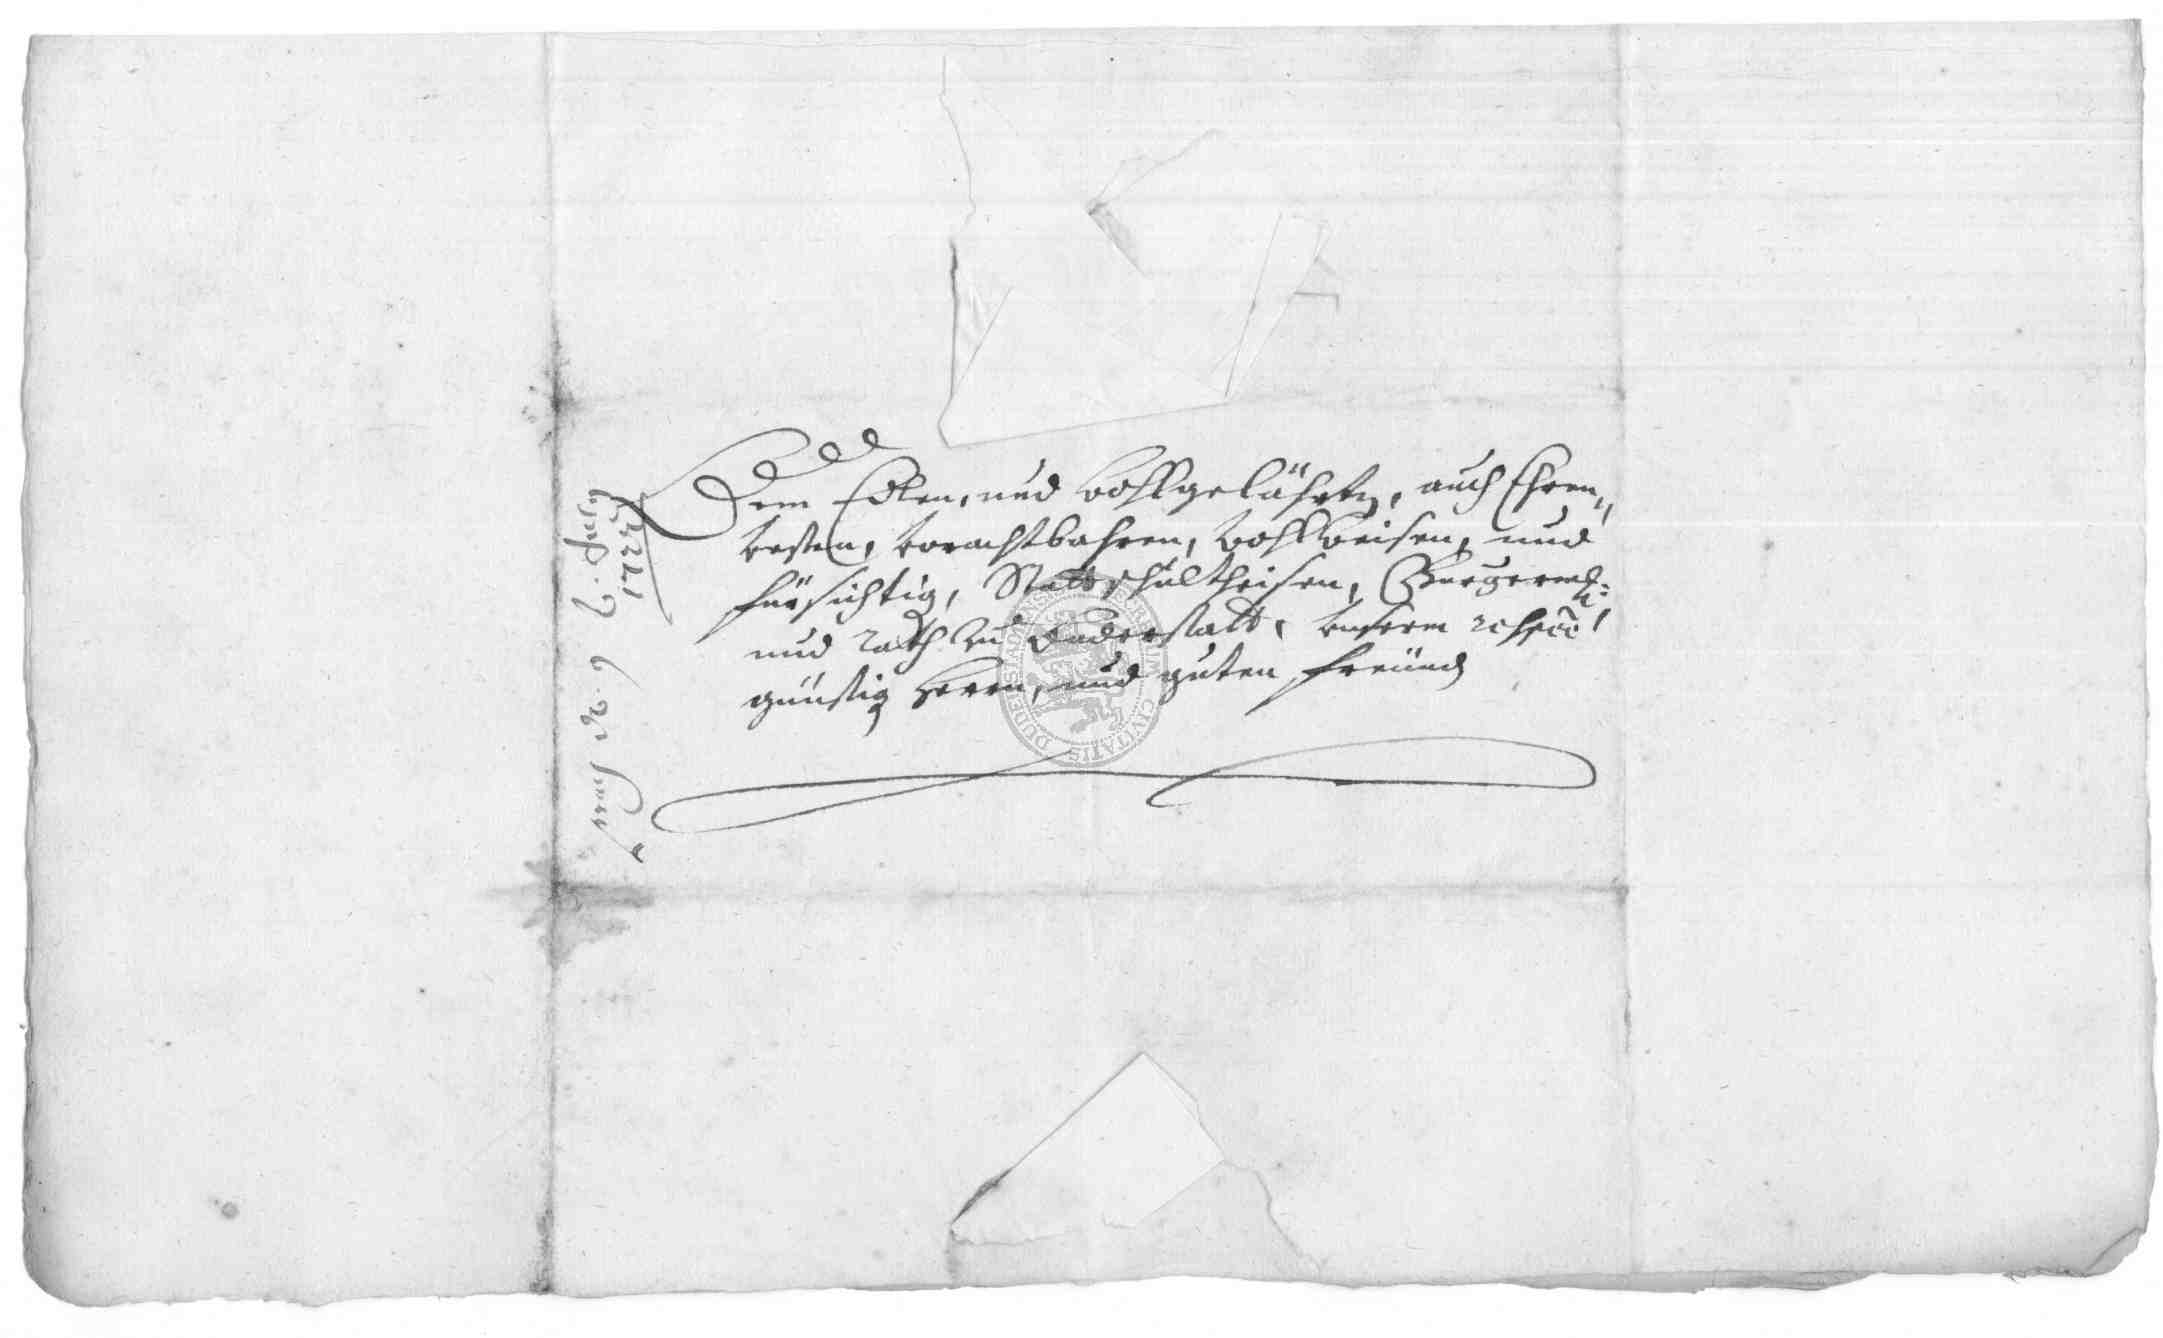 Dem Edlen, und wohlgelährten, auch Ehren„
vesten, vorachtbahren, wohlweisen, und
fürsichtig, Stattschultheisen, Burgermstr:
und Rath zu Duderstatt, unserm respect:
günstig Herrn, und guten freünd
SECRETUM CIVITATIS DUDERSTADIENSIS